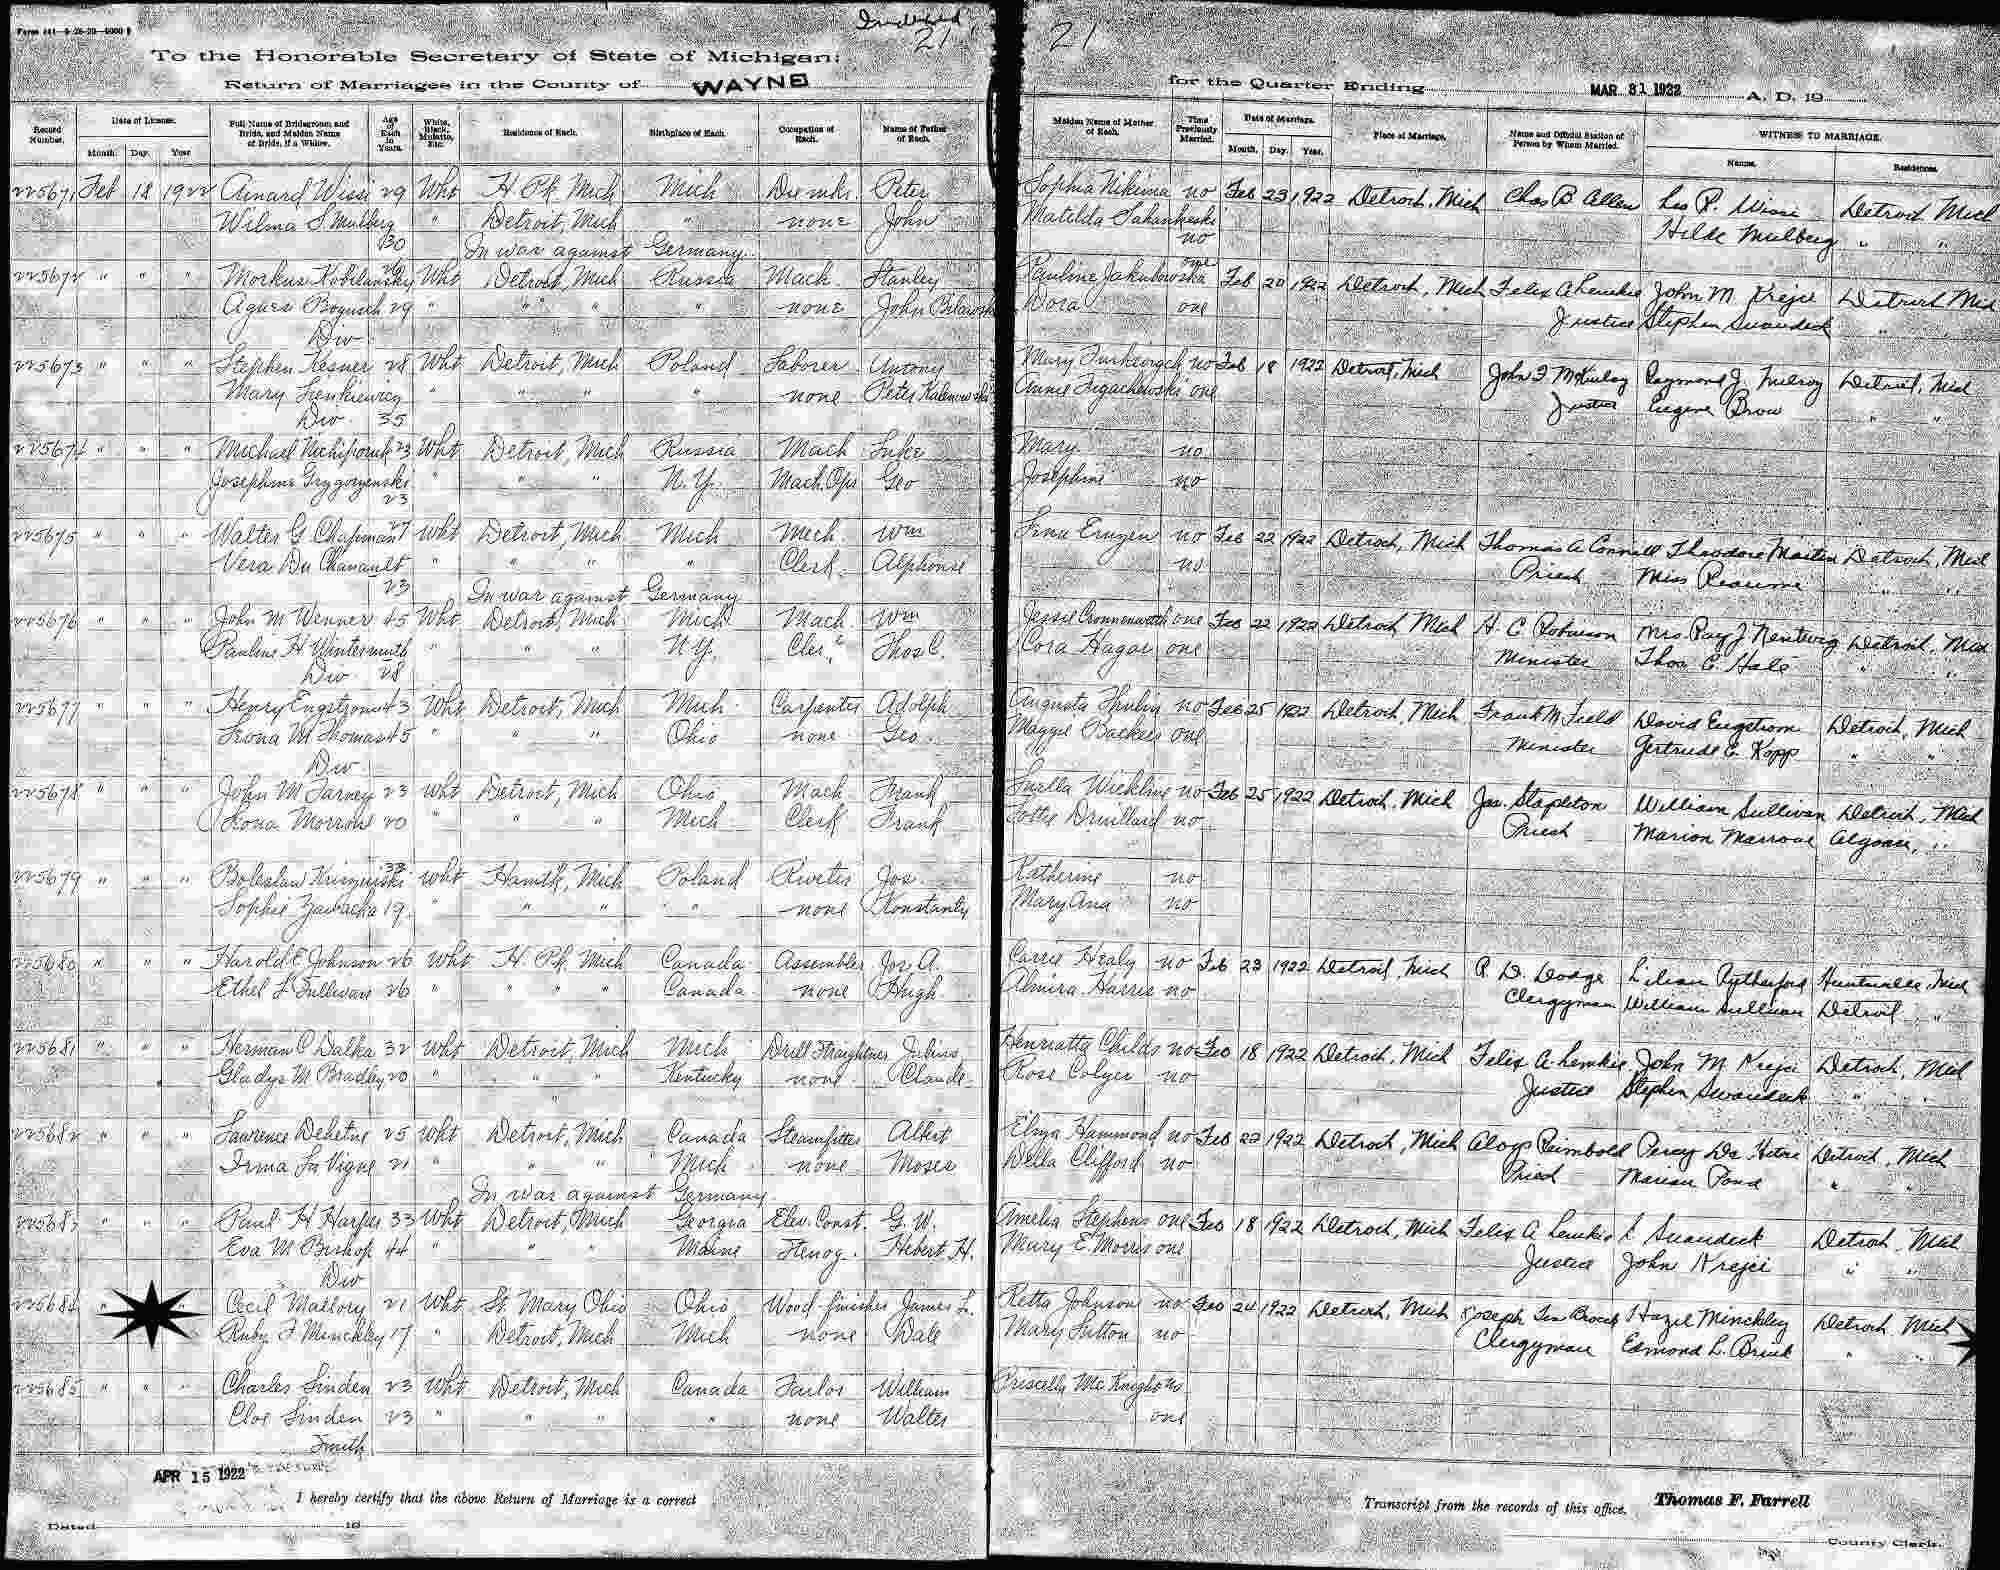 Form 441—9-26-20—6000
Indexed
21
To the Honorable Secretary of State of Michigan:
Return of Marriages in the County of WAYNE
Record Number.
Date of License.
Month. Day. Year
Full Name of Bridegroom and Bride, and Maiden Name of Bride, if a Widow.
Age of Each in Years.
White, Black, Mulatto, Etc.
Residence of Each.
Birthplace of Each.
Occupation of Each.
Name of Father of Each.
225671 Feb 18 1922 Wissi 29 Wht H. Pk, Mich Mich Die mkr. Peter
Wilma S. Mulberg 30 " Detroit, Mich " none John
In war against Germany
225672 " " " Morkus Kobilansky 26 Wht Detroit, Mich Russia Mach. Stanley
Agnes Bogusch 29 " " " " none John
Div.
225673 " " " Stephen Kesner 28 Wht Detroit, Mich Poland Laborer Antony
Mary Sienkiewicz " " " " none Peter Kalinowski
Div. 35
225674 " " " Michael Nichiporuk 23 Wht Detroit, Mich Russia Mach Luke
Josephine 23 " " " N.Y. Mach. Ops Geo
225675 " " " Walter G. Chapman 27 Wht Detroit, Mich Mich Mech. Wm
Vera Du Chanault 23 " " " " Clerk Alphonse
In war against Germany
225676 " " " John M Wenner 45 Wht Detroit, Mich Mich Mach Wm
Pauline H Wintermuth " " " N.Y. Cler. Thos C.
Div. 28
225677 " " " Henry Engstrom 43 Wht Detroit, Mich Mich Carpenter Adolph
Leona M Thomas 45 " " " Ohio none Geo.
Div
225678 " " " John M Garvey 23 Wht Detroit, Mich Ohio Mach Frank
Leona Morrow 20 " " " Mich Clerk Frank
225679 " " " Boleslaw 33 Wht Hamtk, Mich Poland Riveter Jos.
Sophie 19 " " " " none Konstanty
225680 " " " Harold E Johnson 26 Wht H. Pk, Mich Canada Assembler Jos A.
Ethel L Sullivan 26 " " " " Canada none Hugh
225681 " " " Herman C Dalka 32 Wht Detroit, Mich Mich Drill Straightner Julius
Gladys M Bradley 20 " " " Kentucky none Claude
225682 " " " Lawrence Dehetre 25 Wht Detroit, Mich Canada Steamfitter Albert
Irma La Vigne 21 " " " Mich none Moses
In war against Germany
225683 " " " Paul H Harper 33 Wht Detroit, Mich Georgia Elev. Const. G. W.
Eva M Bishop 44 " " " Maine Stenog. Hebert H.
Div
225684 " " " Cecil Mallory 21 Wht St. Mary Ohio Ohio Wood finisher James L.
Ruby F Minckley 17 " Detroit, Mich Mich none Dale
225685 " " " Charles Linden 23 Wht Detroit, Mich Canada Tailor William
Cloe Linden 23 " " " " none Walter
Smith
APR 15 1922
I hereby certify that the above Return of Marriage is a correct
Dated 19
21
for the Quarter Ending MAR 31 1922 A. D. 19
Maiden Name of Mother of Each.
Times Previously Married.
Date of Marriage.
Month. Day. Year.
Place of Marriage.
Name and Official Station of Person by Whom Married.
WITNESS TO MARRIAGE.
Names. Residences.
Sophia Nikima no Feb 23 1922 Detroit, Mich Chas B. Allen Leo P. Wissi Detroit Mich
Matilda no Hilde Mulberg " "
Pauline Jakubowska one Feb 20 1922 Detroit, Mich Felix A Lemkie John M Krejci Detroit Mich
Dora one Justice Stephen Swaudeck " "
Mary no Feb 18 1922 Detroit, Mich John F McKinlay Raymond J Detroit, Mich
Annie one Justice Eugene Brow " "
Mary no
Josephine no
no Feb 22 1922 Detroit, Mich Thomas A Connell Theodore Martin Detroit, Mich
no Priest Miss Reaume " "
Jessie Cronnenwerth one Feb 22 1922 Detroit Mich H. C. Robinson Mrs Ray J. Nentwig Detroit, Mich
Cora Hagar one Minister Thos C. Hale " "
Augusta no Feb 25 1922 Detroit, Mich Frank M Field David Engstrom Detroit, Mich
Maggie Backus one Minister Gertrude E. Kopp " "
Luella Wickline no Feb 25 1922 Detroit, Mich Jas. Stapleton William Sullivan Detroit, Mich
Lottie Druillard no Priest Marion Marrow Algonac, "
Katherine no
Mary Ana no
Carrie Healy no Feb 23 1922 Detroit, Mich R. D. Dodge Lilian Rutherford Mich
Almira Harris no Clergyman William Sullivan Detroit "
Henrietta Childs no Feb 18 1922 Detroit, Mich Felix A. Lemkie John M Krejci Detroit, Mich
Rose Colyer no Justice Stephen Swaudeck " "
Eliza Hammond no Feb 22 1922 Detroit, Mich Aloys Reimbold Percy De Hetre Detroit, Mich
Della Clifford no Priest Marian Pond " "
Amelia Stephens one Feb 18 1922 Detroit, Mich Felix A Lemkie S Swaudeck Detroit, Mich
Mary E. Morris one Justice John Krejci " "
Retta Johnson no Feb 24 1922 Detroit, Mich Joseph Ten Broeck Hazel Minckley Detroit, Mich
Mary Sutton no Clergyman Edmond L. Brink " "
Priscilla McKnight no
one
Transcript from the records of this office. Thomas F. Farrell
County Clerk.